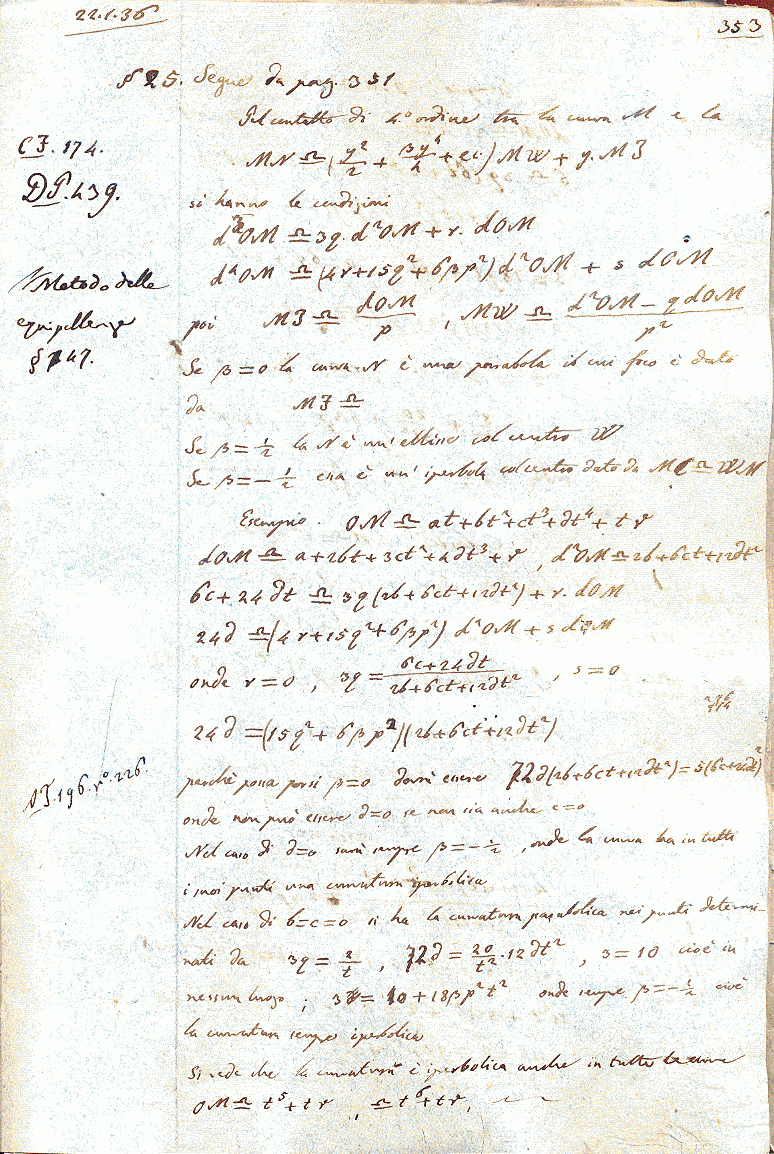 22.1.36
353
§ 25. Segue da pag. 351
Pel contatto di 4.° ordine tra la curva M e la
CI. 174.
MN ≏ (y²/2 + 3y⁴/4 + ec.) MW + y. MI
DI. 439.
si hanno le condizioni
d³OM ≏ 3q. d²OM + r. dOM
d⁴OM ≏ (4r+15q²+6βp²) d²OM + s dOM
Metodo delle
equipollenze
§ 147.
poi MI ≏ dOM/p , MW ≏ (d²OM − q dOM)/p²
Se β=0 la curva N è una parabola il cui foco è dato
da MI ≏
Se β=½ la N è un'ellisse col centro W
Se β=−½ essa è un'iperbola col centro dato da MC ≏ WM
Esempio. OM ≏ at+bt²+ct³+dt⁴+tr
dOM ≏ a+2bt+3ct²+4dt³+r , d²OM ≏ 2b+6ct+12dt²
6c+24dt ≏ 3q(2b+6ct+12dt²)+r. dOM
24d ≏ (4r+15q²+6βp²) d²OM + s dOM
onde r=0 , 3q = (6c+24dt)/(2b+6ct+12dt²) , s=0
24d = (15q²+6βp²)(2b+6ct+12dt²)
196. r° 226.
perchè possa porsi β=0 dovrà essere 72d(2b+6ct+12dt²)=5(6c+24dt)²
onde non può essere d=0 se non sia anche c=0
Nel caso di d=0 sarà sempre β=−½ , onde la curva ha in tutti
i suoi punti una curvatura iperbolica
Nel caso di b=c=0 si ha la curvatura parabolica nei punti determi-
nati da 3q = 2/t , 72d = 20/t² . 12dt² , 3=10 cioè in
nessun luogo ; = 10+18βp²t² onde sempre β=−½ cioè
la curvatura sempre iperbolica
Si vede che la curvatura è iperbolica anche in tutte le curve
OM ≏ t⁵+tr , ≏ t⁶+tr,